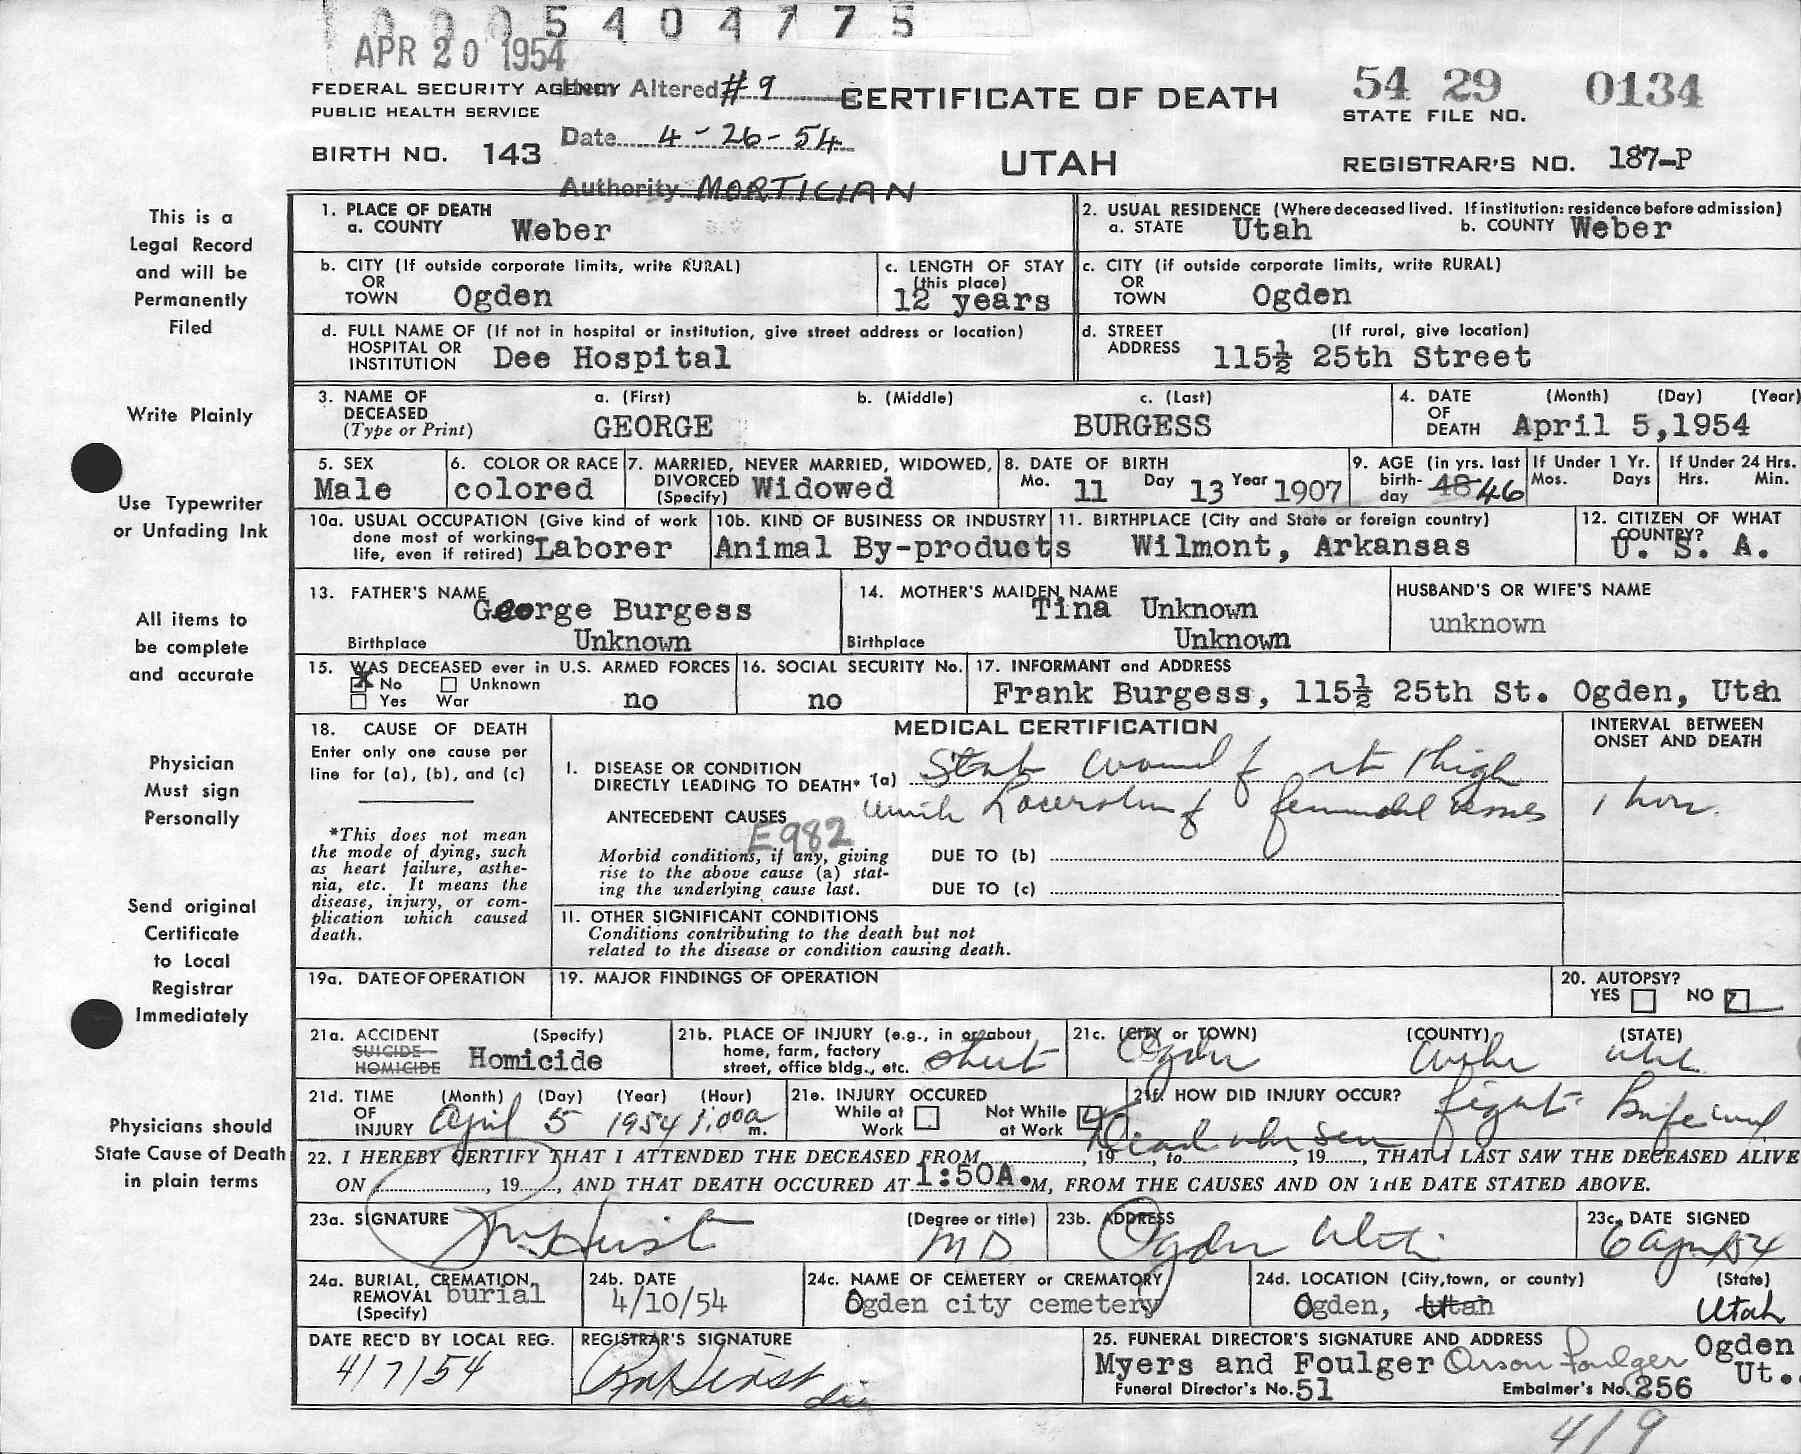 0005404775
APR 20 1954
FEDERAL SECURITY AGENCY
PUBLIC HEALTH SERVICE
Item Altered #9
Date 4-26-54
Authority MORTICIAN
BIRTH NO. 143
CERTIFICATE OF DEATH
UTAH
54 29 0134
STATE FILE NO.
REGISTRAR'S NO. 187-P
This is a
Legal Record
and will be
Permanently
Filed
Write Plainly
Use Typewriter
or Unfading Ink
All items to
be complete
and accurate
Physician
Must sign
Personally
Send original
Certificate
to Local
Registrar
Immediately
Physicians should
State Cause of Death
in plain terms
1. PLACE OF DEATH
a. COUNTY Weber
2. USUAL RESIDENCE (Where deceased lived. If institution: residence before admission)
a. STATE Utah b. COUNTY Weber
b. CITY (If outside corporate limits, write RURAL)
OR
TOWN Ogden
c. LENGTH OF STAY
(this place)
12 years
c. CITY (if outside corporate limits, write RURAL)
OR
TOWN Ogden
d. FULL NAME OF (If not in hospital or institution, give street address or location)
HOSPITAL OR
INSTITUTION Dee Hospital
d. STREET (If rural, give location)
ADDRESS 115½ 25th Street
3. NAME OF a. (First) b. (Middle) c. (Last)
DECEASED
(Type or Print) GEORGE BURGESS
4. DATE (Month) (Day) (Year)
OF
DEATH April 5,1954
5. SEX
Male
6. COLOR OR RACE
colored
7. MARRIED, NEVER MARRIED, WIDOWED,
DIVORCED
(Specify) Widowed
8. DATE OF BIRTH
Mo. 11 Day 13 Year 1907
9. AGE (in yrs. last
birth-
day 48 46
If Under 1 Yr.
Mos. Days
If Under 24 Hrs.
Hrs. Min.
10a. USUAL OCCUPATION (Give kind of work
done most of working
life, even if retired) Laborer
10b. KIND OF BUSINESS OR INDUSTRY
Animal By-products
11. BIRTHPLACE (City and State or foreign country)
Wilmont, Arkansas
12. CITIZEN OF WHAT
COUNTRY?
U. S. A.
13. FATHER'S NAME
George Burgess
Birthplace Unknown
14. MOTHER'S MAIDEN NAME
Tina Unknown
Birthplace Unknown
HUSBAND'S OR WIFE'S NAME
unknown
15. WAS DECEASED ever in U.S. ARMED FORCES
X No Unknown
Yes War no
16. SOCIAL SECURITY No.
no
17. INFORMANT and ADDRESS
Frank Burgess, 115½ 25th St. Ogden, Utah
18. CAUSE OF DEATH
Enter only one cause per
line for (a), (b), and (c)
*This does not mean
the mode of dying, such
as heart failure, asthe-
nia, etc. It means the
disease, injury, or com-
plication which caused
death.
MEDICAL CERTIFICATION
INTERVAL BETWEEN
ONSET AND DEATH
I. DISEASE OR CONDITION
DIRECTLY LEADING TO DEATH* (a) Stab wound of rt thigh
ANTECEDENT CAUSES with Laceration of femoral vessels 1 hour.
E982
Morbid conditions, if any, giving
rise to the above cause (a) stat-
ing the underlying cause last.
DUE TO (b)
DUE TO (c)
II. OTHER SIGNIFICANT CONDITIONS
Conditions contributing to the death but not
related to the disease or condition causing death.
19a. DATE OF OPERATION
19. MAJOR FINDINGS OF OPERATION
20. AUTOPSY?
YES NO
21a. ACCIDENT (Specify)
SUICIDE
HOMICIDE Homicide
21b. PLACE OF INJURY (e.g., in or about
home, farm, factory
street, office bldg., etc. street
21c. (CITY or TOWN) (COUNTY) (STATE)
Ogden Weber Utah
21d. TIME (Month) (Day) (Year) (Hour)
OF
INJURY April 5 1954 1:00a m.
21e. INJURY OCCURED
While at Work
Not While at Work
21f. HOW DID INJURY OCCUR? fight Knife wound
Dead when seen
22. I HEREBY CERTIFY THAT I ATTENDED THE DECEASED FROM , 19 , to , 19 , THAT I LAST SAW THE DECEASED ALIVE
ON , 19 , AND THAT DEATH OCCURED AT 1:50A.M, FROM THE CAUSES AND ON THE DATE STATED ABOVE.
23a. SIGNATURE
(Degree or title)
MD
23b. ADDRESS
Ogden Utah
23c. DATE SIGNED
6 Apr 54
24a. BURIAL, CREMATION,
REMOVAL burial
(Specify)
24b. DATE
4/10/54
24c. NAME OF CEMETERY or CREMATORY
Ogden city cemetery
24d. LOCATION (City, town, or county) (State)
Ogden, Utah Utah
DATE REC'D BY LOCAL REG.
4/7/54
REGISTRAR'S SIGNATURE
25. FUNERAL DIRECTOR'S SIGNATURE AND ADDRESS
Myers and Foulger Orson Foulger Ogden
Ut.
Funeral Director's No. 51 Embalmer's No. 256
4/9